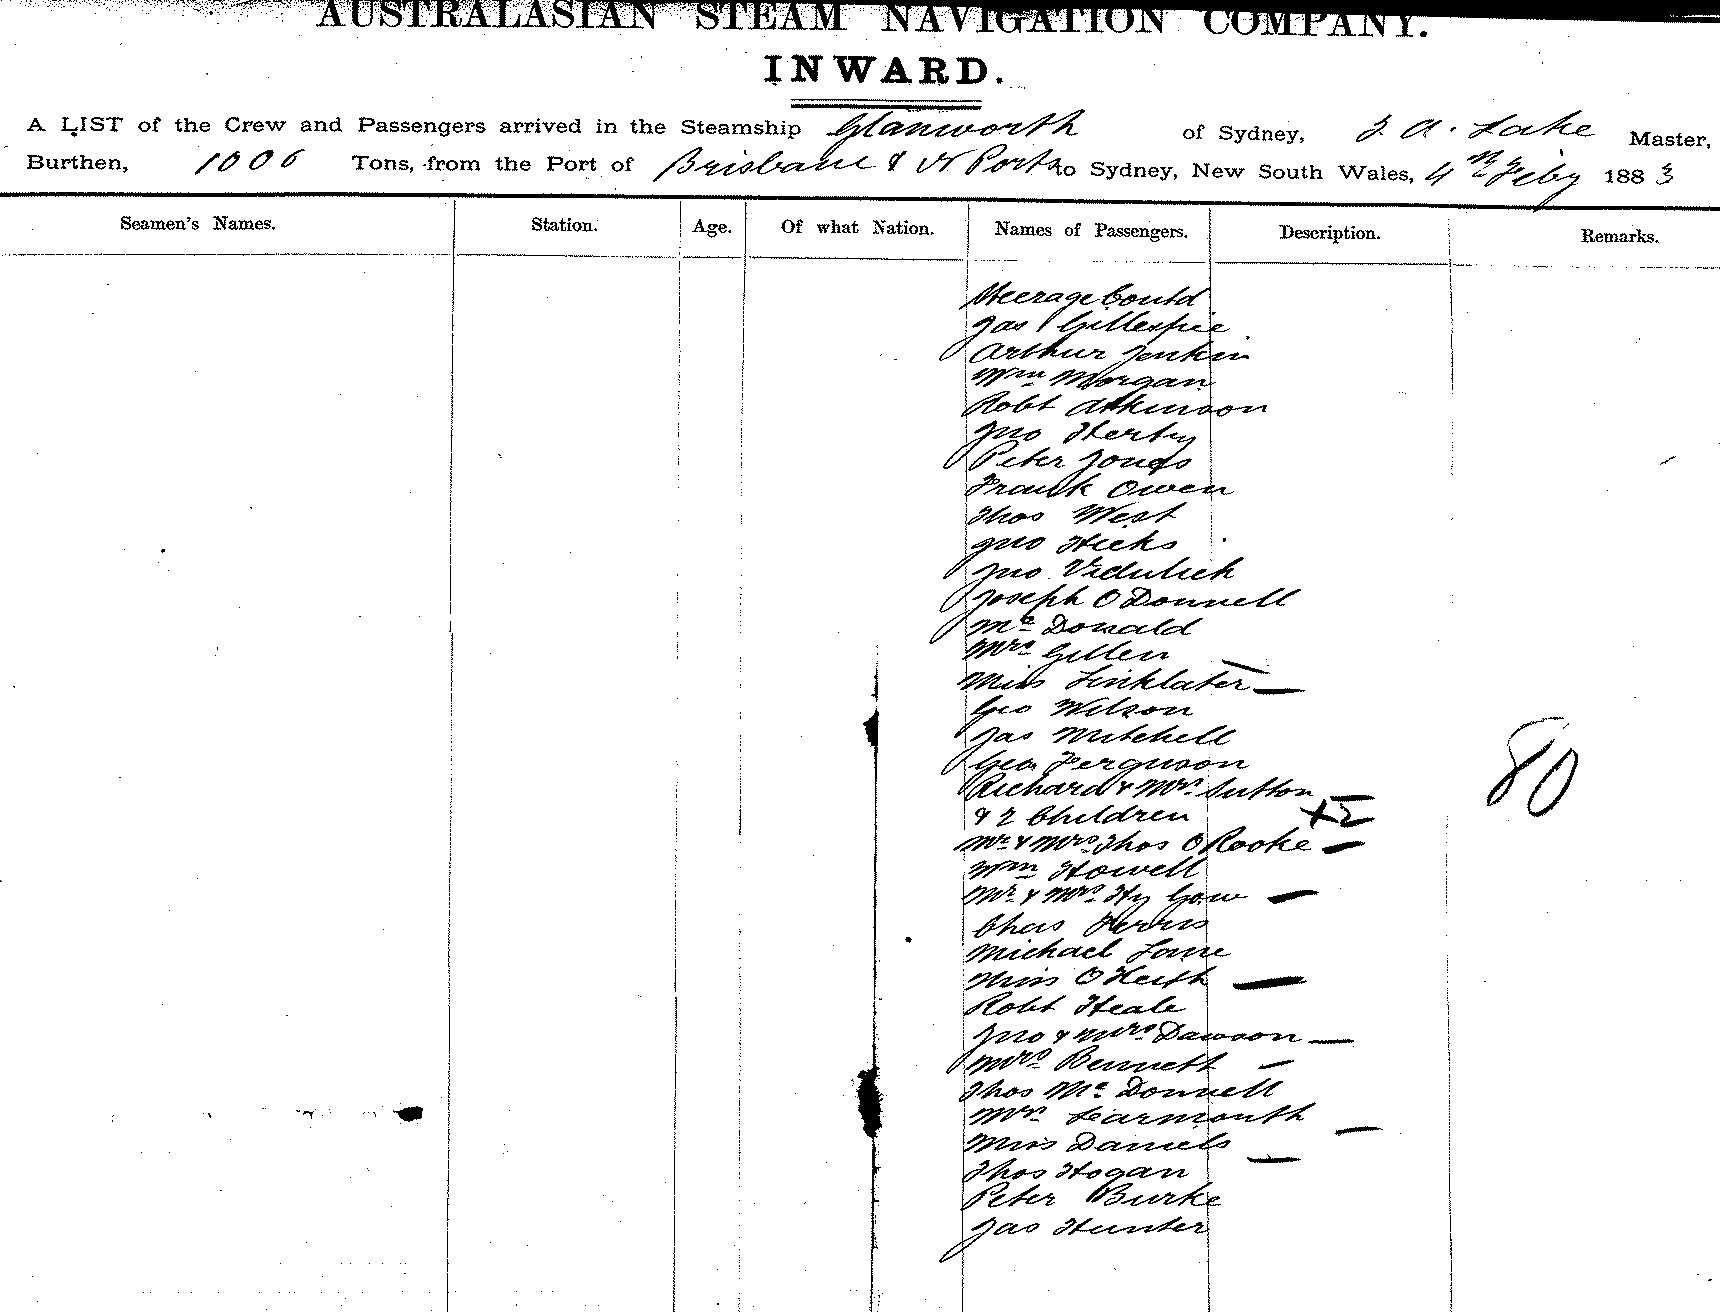 AUSTRALASIAN STEAM NAVIGATION COMPANY.
INWARD.
A LIST of the Crew and Passengers arrived in the Steamship Glanworth of Sydney, J. A. Lake Master,
Burthen, 1006 Tons, from the Port of Brisbane & N Ports to Sydney, New South Wales, 4th Feby 1883
Seamen's Names. Station. Age. Of what Nation. Names of Passengers. Description. Remarks.
Steerage Contd
Jas Gillespie
Arthur Jenkin
Wm Morgan
Robt Atkinson
Jno Herby
Peter Jones
Frank Owen
Thos West
Jno Hicks
Jno Vidulich
Joseph O Donnell
Mc Donald
Mrs Gillen
Miss Linklater
Geo Wilson
Jas Mitchell
Geo Ferguson
Richard & Mrs Sutton
& 2 Children +2
Mr & Mrs Thos O Rooke
Wm Howell
Mr & Mrs Hy Gow
Chas Ferris
Michael Lane
Miss O Keith
Robt Heale
Jno & Mrs Dawson
Mrs Bennett
Thos Mc Donnell
Mrs Learmonth
Miss Daniels
Thos Hogan
Peter Burke
Jas Hunter
80